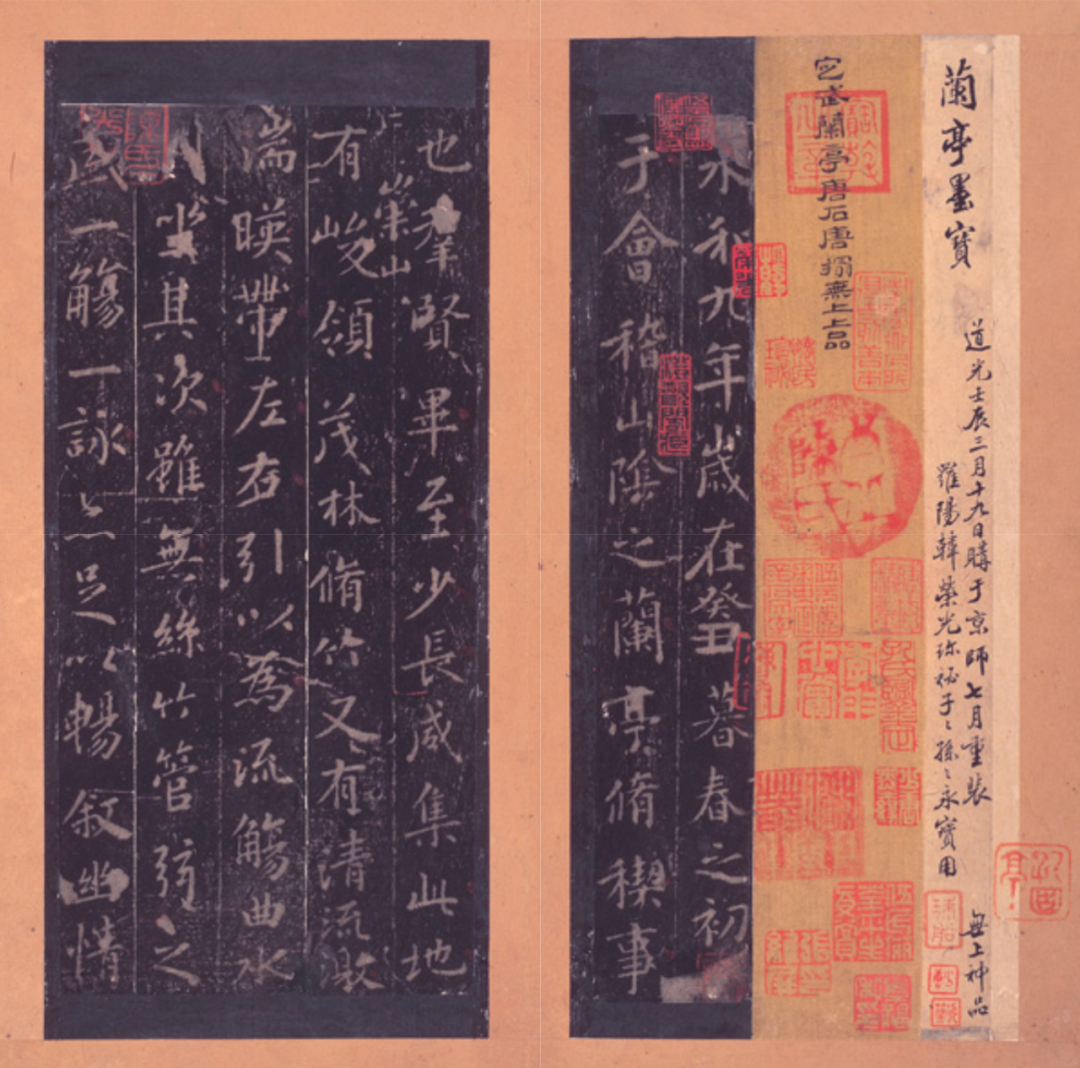 蘭亭墨寶
道光壬辰三月十九日購于京師七月重裝
羅陽韓榮光珍祕子〻孫〻永寶用
無上神品
定武蘭亭唐石唐搨無上上品
永和九年歲在癸丑暮春之初
于會稽山陰之蘭亭脩稧事
也羣賢畢至少長咸集此地
有崇山峻領茂林脩竹又有清流激
湍暎帶左右引以為流觴曲水
列坐其次雖無絲竹管弦之
盛一觴一詠亦足以暢敘幽情